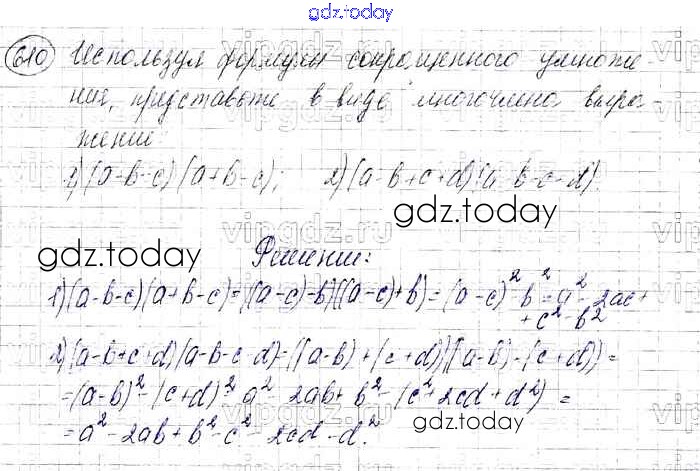 gdz.today
610 Используя формулы сокращенного умноже-
ния, представьте в виде многочлена выра-
жение:
1) (a-b-c)(a+b-c); 2) (a-b+c+d)(a-b-c-d).
gdz.today
gdz.today
Решение:
1) (a-b-c)(a+b-c)=((a-c)-b)((a-c)+b)=(a-c)²-b²=a²-2ac+
+c²-b²
2) (a-b+c+d)(a-b-c-d)=((a-b)+(c+d))((a-b)-(c+d))=
=(a-b)²-(c+d)²=a²-2ab+b²-(c²+2cd+d²)=
gdz.today
=a²-2ab+b²-c²-2cd-d².